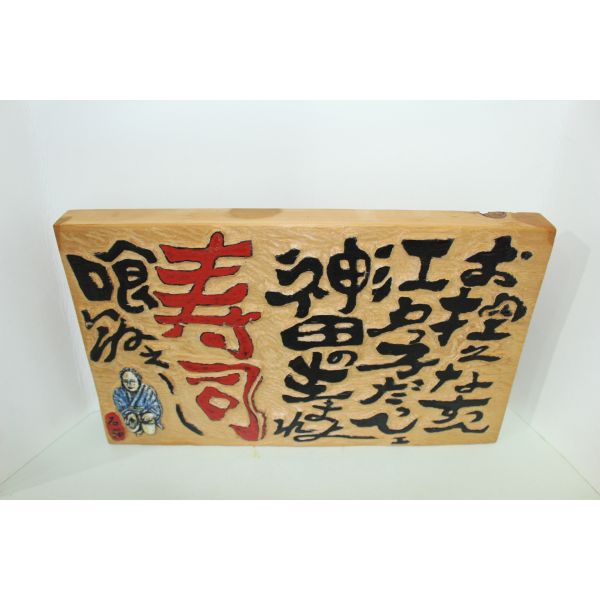 お控えなすって
江戸っ子だってェ
神田の生まれよ
寿司
喰いねぇー